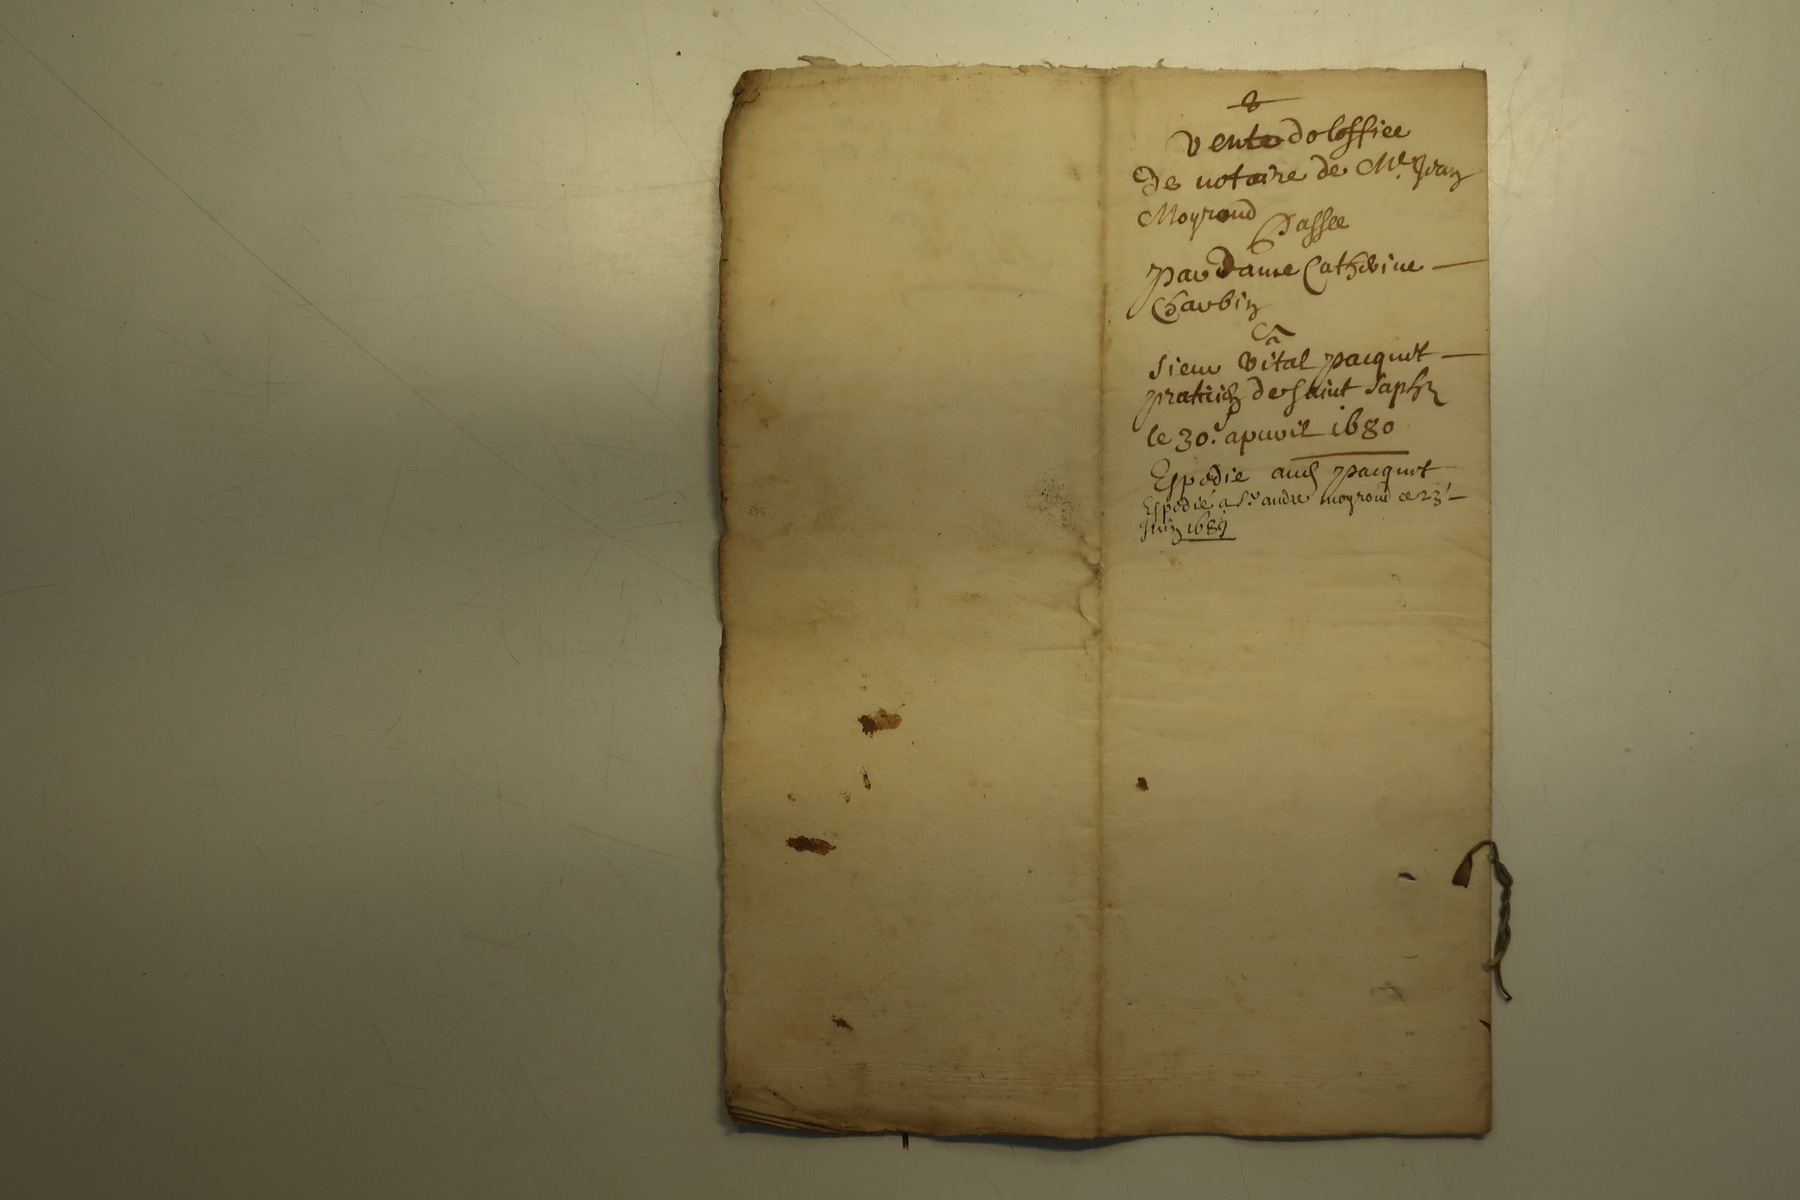 Vente de loffice
De notaire de Me. Jean
Moyroud
Passee
par Dame Catherine
Charbin
A
sieur Vital pacquet
praticien de Saint Saph
le 30e. apuvil 1680
Espedie aud pacquet
Espedié a Sr andre moyroud ce 23e
Juin 1689